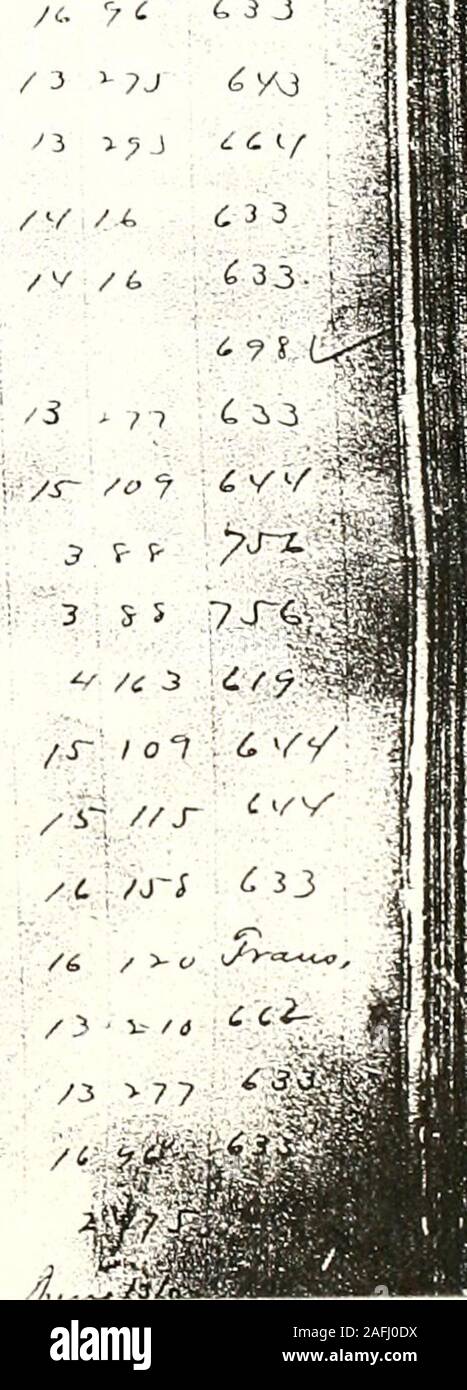 16 96 633
13 275 643
13 295 664
14 16 633
14 16 633.
698 ✓
13 277 633
15 109 644
3 88 756
3 88 756.
4 163 619
15 109 644
15 115 644
16 158 633
16 120 Trans,
13 210 662
13 277 633
16 96 633
2475
a alamy
Image ID: 2AFJ0DX
www.alamy.com